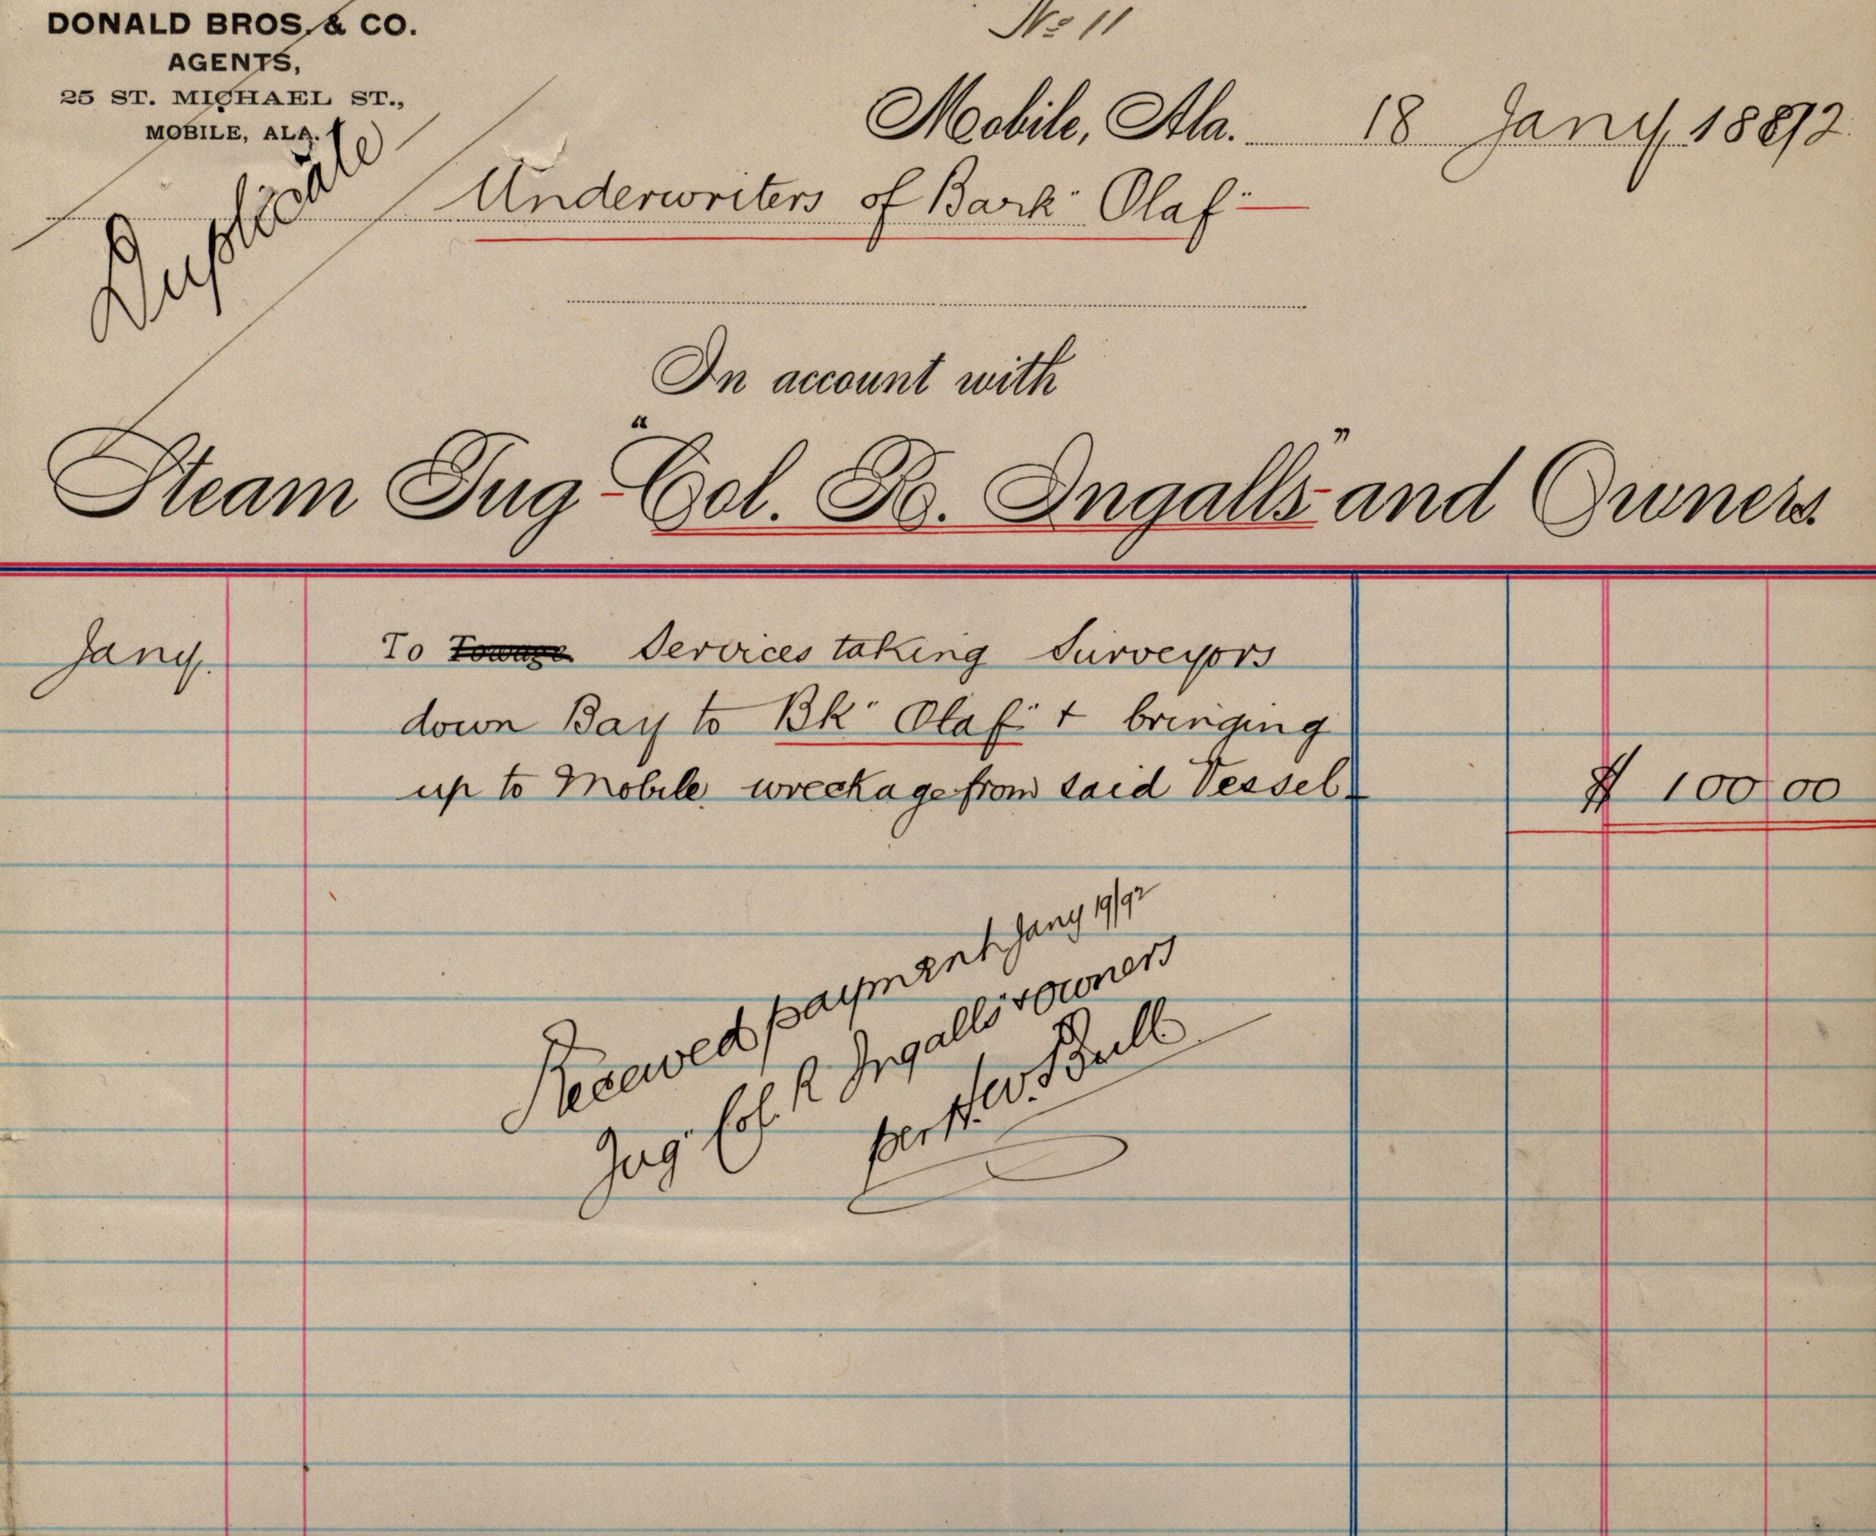 DONALD BROS. & CO.
AGENTS,
25 ST. MICHAEL ST.,
MOBILE, ALA.
Duplicate
No 11
Mobile, Ala. 18 Jany 1892
Underwriters of Bark "Olaf"
In account with
Steam Tug "Col. R. Ingalls" and Owners.
Jany. To Towage Services taking Surveyors
down Bay to Bk "Olaf" + bringing
up to Mobile wreckage from said Vessel $ 100 00
Received payment Jany 19/92
Tug "Col. R Ingalls" + owners
per H. W. Bull